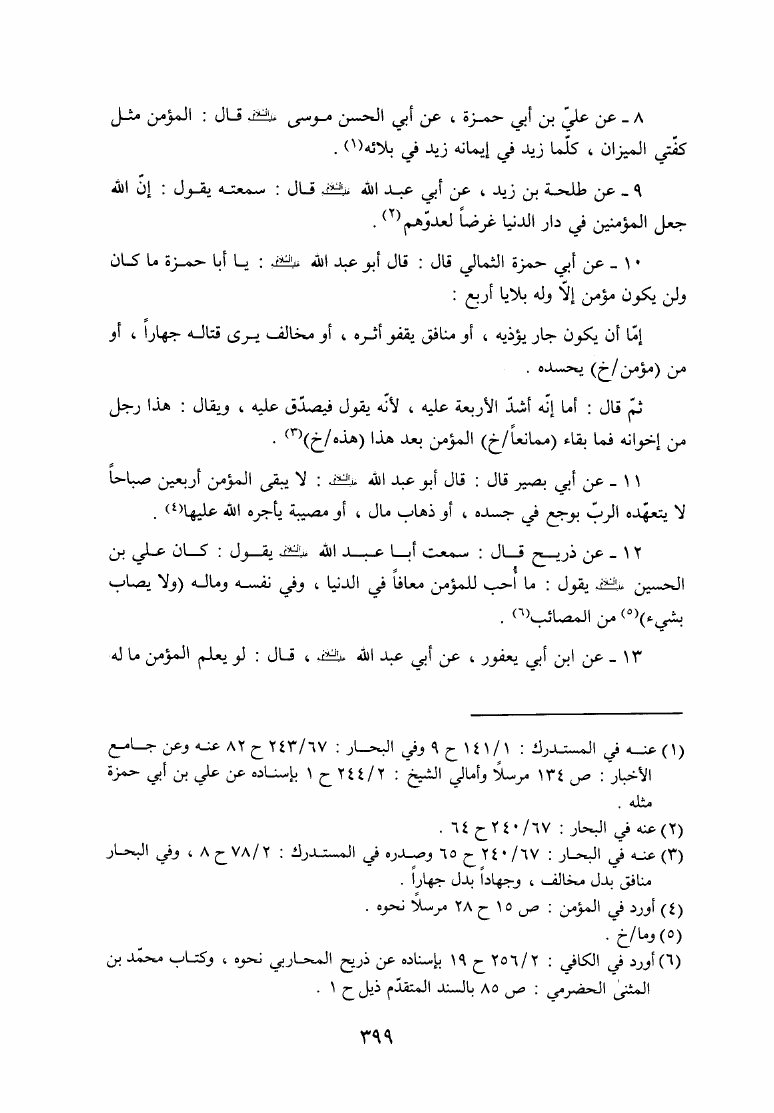 ٨ ـ عن عليّ بن أبي حمزة ، عن أبي الحسن موسى عليه السلام قال : المؤمن مثل
كفّتي الميزان ، كلّما زيد في إيمانه زيد في بلائه(١) .
٩ ـ عن طلحة بن زيد ، عن أبي عبد الله عليه السلام قال : سمعته يقول : إنّ الله
جعل المؤمنين في دار الدنيا غرضاً لعدوّهم(٢) .
١٠ ـ عن أبي حمزة الثمالي قال : قال أبو عبد الله عليه السلام : يا أبا حمزة ما كان
ولن يكون مؤمن إلّا وله بلايا أربع :
إمّا أن يكون جار يؤذيه ، أو منافق يقفو أثره ، أو مخالف يرى قتاله جهاراً ، أو
من (مؤمن/خ) يحسده .
ثمّ قال : أما إنّه أشدّ الأربعة عليه ، لأنّه يقول فيصدّق عليه ، ويقال : هذا رجل
من إخوانه فما بقاء (ممانعاً/خ) المؤمن بعد هذا (هذه/خ)(٣) .
١١ ـ عن أبي بصير قال : قال أبو عبد الله عليه السلام : لا يبقى المؤمن أربعين صباحاً
لا يتعهّده الربّ بوجع في جسده ، أو ذهاب مال ، أو مصيبة يأجره الله عليها(٤) .
١٢ ـ عن ذريح قال : سمعت أبا عبد الله عليه السلام يقول : كان علي بن
الحسين عليه السلام يقول : ما أُحب للمؤمن معافاً في الدنيا ، وفي نفسه وماله (ولا يصاب
بشيء)(٥) من المصائب(٦) .
١٣ ـ عن ابن أبي يعفور ، عن أبي عبد الله عليه السلام ، قال : لو يعلم المؤمن ما له
(١) عنه في المستدرك : ١٤١/١ ح ٩ وفي البحار : ٢٤٣/٦٧ ح ٨٢ عنه وعن جامع
الأخبار : ص ١٣٤ مرسلاً وأمالي الشيخ : ٢٤٤/٢ ح ١ بإسناده عن علي بن أبي حمزة
مثله .
(٢) عنه في البحار : ٢٤٠/٦٧ ح ٦٤ .
(٣) عنه في البحار : ٢٤٠/٦٧ ح ٦٥ وصدره في المستدرك : ٧٨/٢ ح ٨ ، وفي البحار
منافق بدل مخالف ، وجهاداً بدل جهاراً .
(٤) أورد في المؤمن : ص ١٥ ح ٢٨ مرسلاً نحوه .
(٥) وما/خ .
(٦) أورد في الكافي : ٢٥٦/٢ ح ١٩ بإسناده عن ذريح المحاربي نحوه ، وكتاب محمّد بن
المثنىٰ الحضرمي : ص ٨٥ بالسند المتقدّم ذيل ح ١ .
٣٩٩